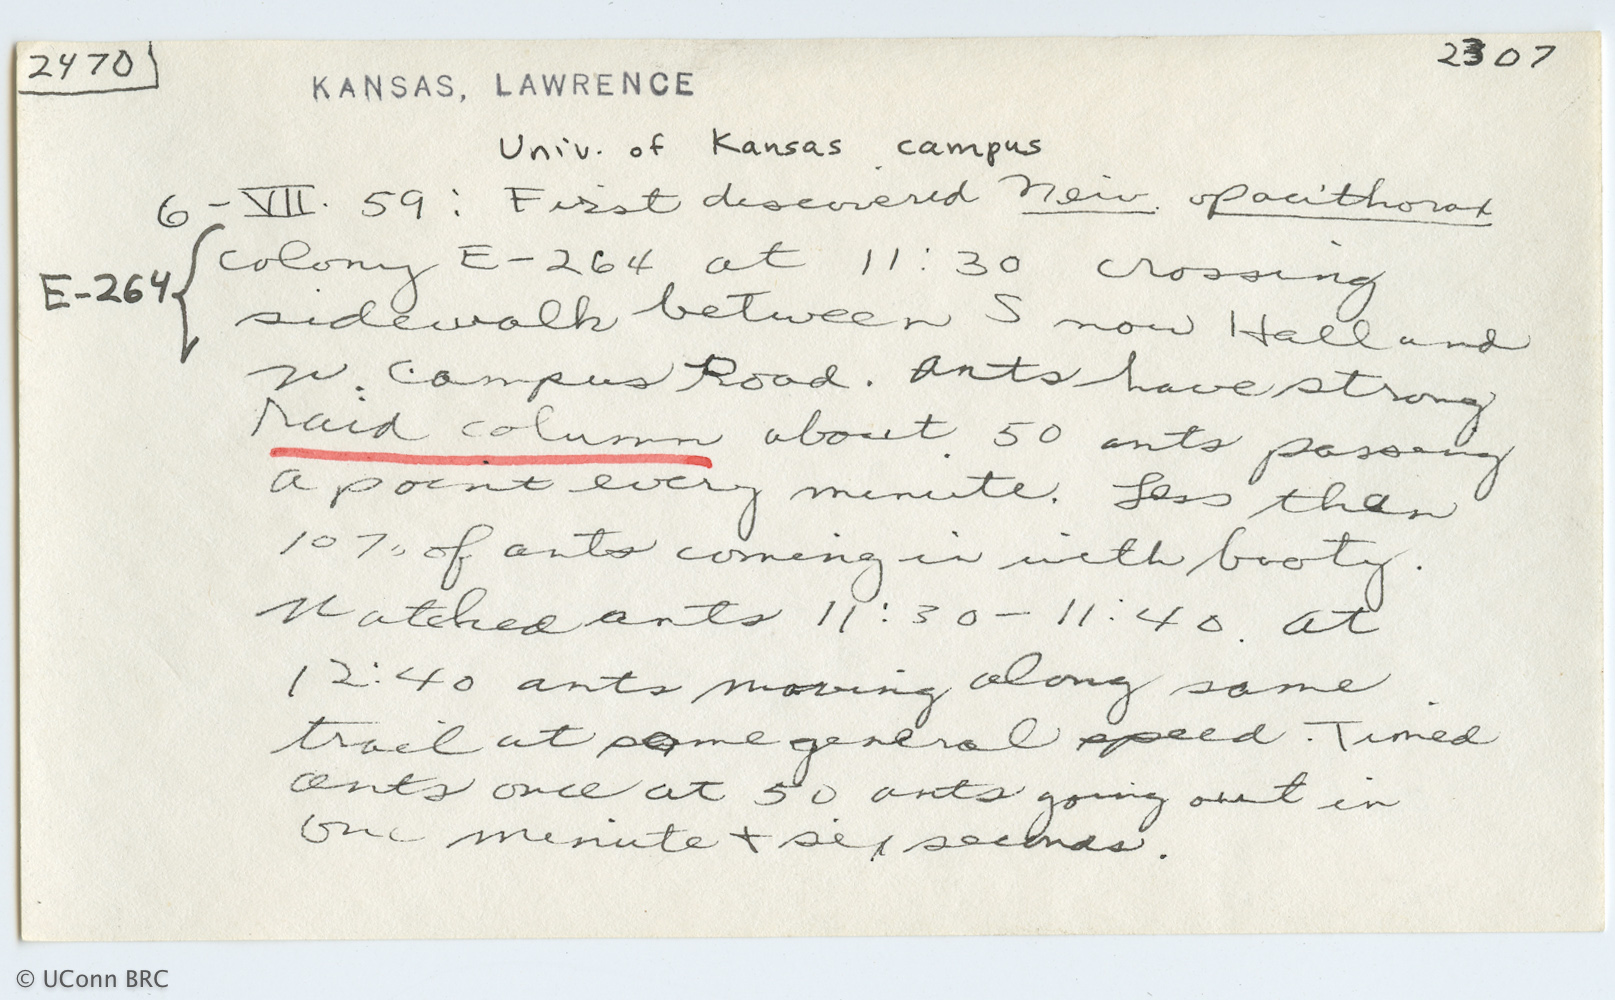 2470
2307
KANSAS, LAWRENCE
Univ. of Kansas campus
6-VII. 59: First discovered Neiv. opacithorax
E-264
colony E-264 at 11:30 crossing
sidewalk between Snow Hall and
W. Campus Road. Ants have strong
raid column about 50 ants passing
a point every minute. Less than
10% of ants coming in with booty.
Watched ants 11:30-11:40. At
12:40 ants moving along same
trail at same general speed. Timed
ants once at 50 ants going out in
one minute + six seconds.
© UConn BRC